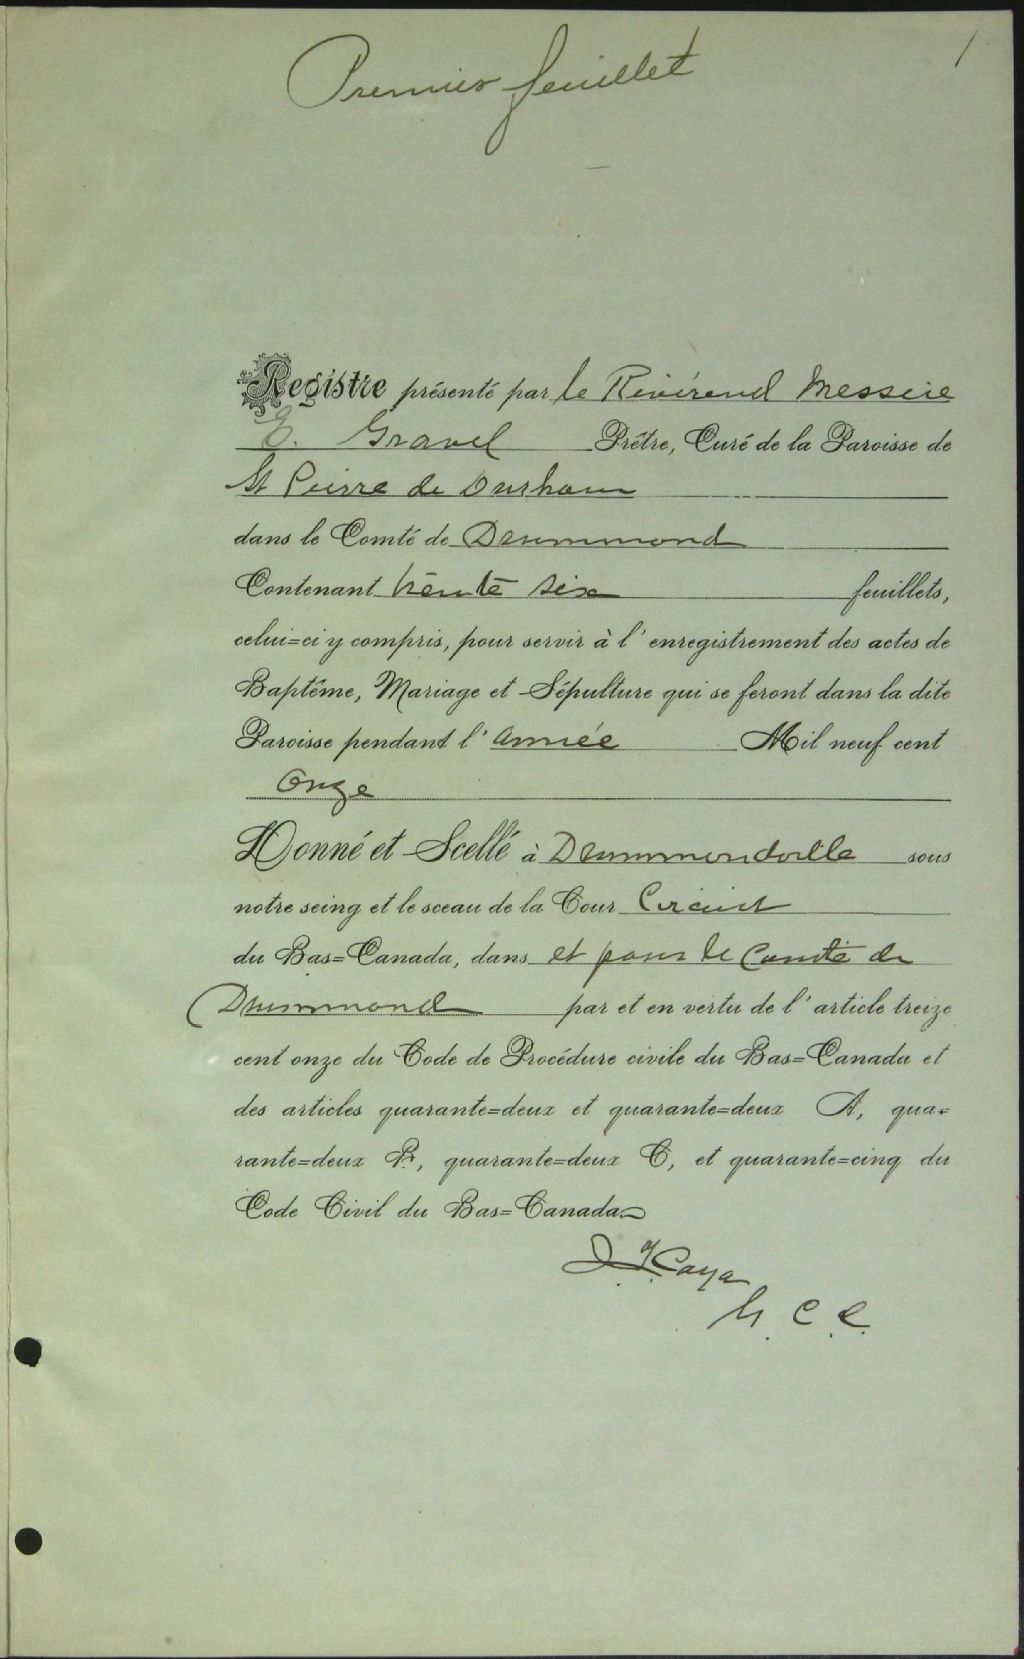 1
Premier feuillet
Registre présenté par le Révérend Messire
E. Gravel Prêtre, Curé de la Paroisse de
St Pierre de Durham
dans le Comté de Drummond
Contenant trente six feuillets,
celui=ci y compris, pour servir à l'enregistrement des actes de
Baptême, Mariage et Sépulture qui se feront dans la dite
Paroisse pendant l'année Mil neuf cent
Onze
Donné et Scellé à Drummondville sous
notre seing et le sceau de la Cour Circuit
du Bas=Canada, dans et pour le Comté de
Drummond par et en vertu de l'article treize
cent onze du Code de Procédure civile du Bas=Canada et
des articles quarante=deux et quarante=deux A, qua=
rante=deux B, quarante=deux C, et quarante=cinq du
Code Civil du Bas=Canada
Caya
C. C.